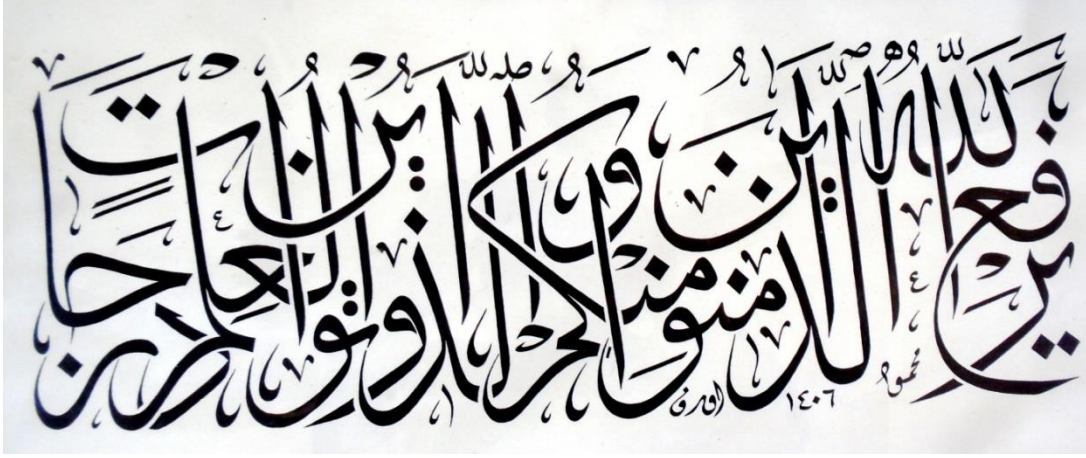 يرفع الله الذين آمنوا منكم والذين أوتوا العلم درجات
محمود ١٤٠٦